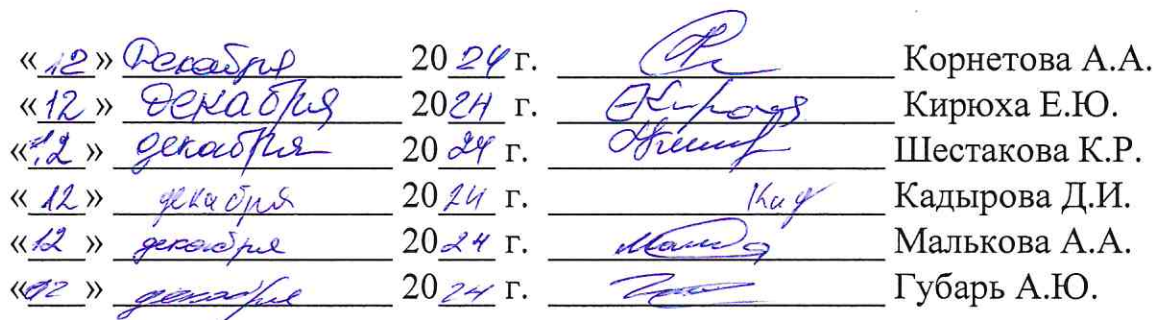 «12» Декабря 2024 г. Корнетова А.А.
«12» декабря 2024 г. Кирюха Е.Ю.
«12» декабря 2024 г. Шестакова К.Р.
«12» декабря 2024 г. Кад Кадырова Д.И.
«12» декабря 2024 г. Малькова А.А.
«12» декабря 2024 г. Губарь А.Ю.